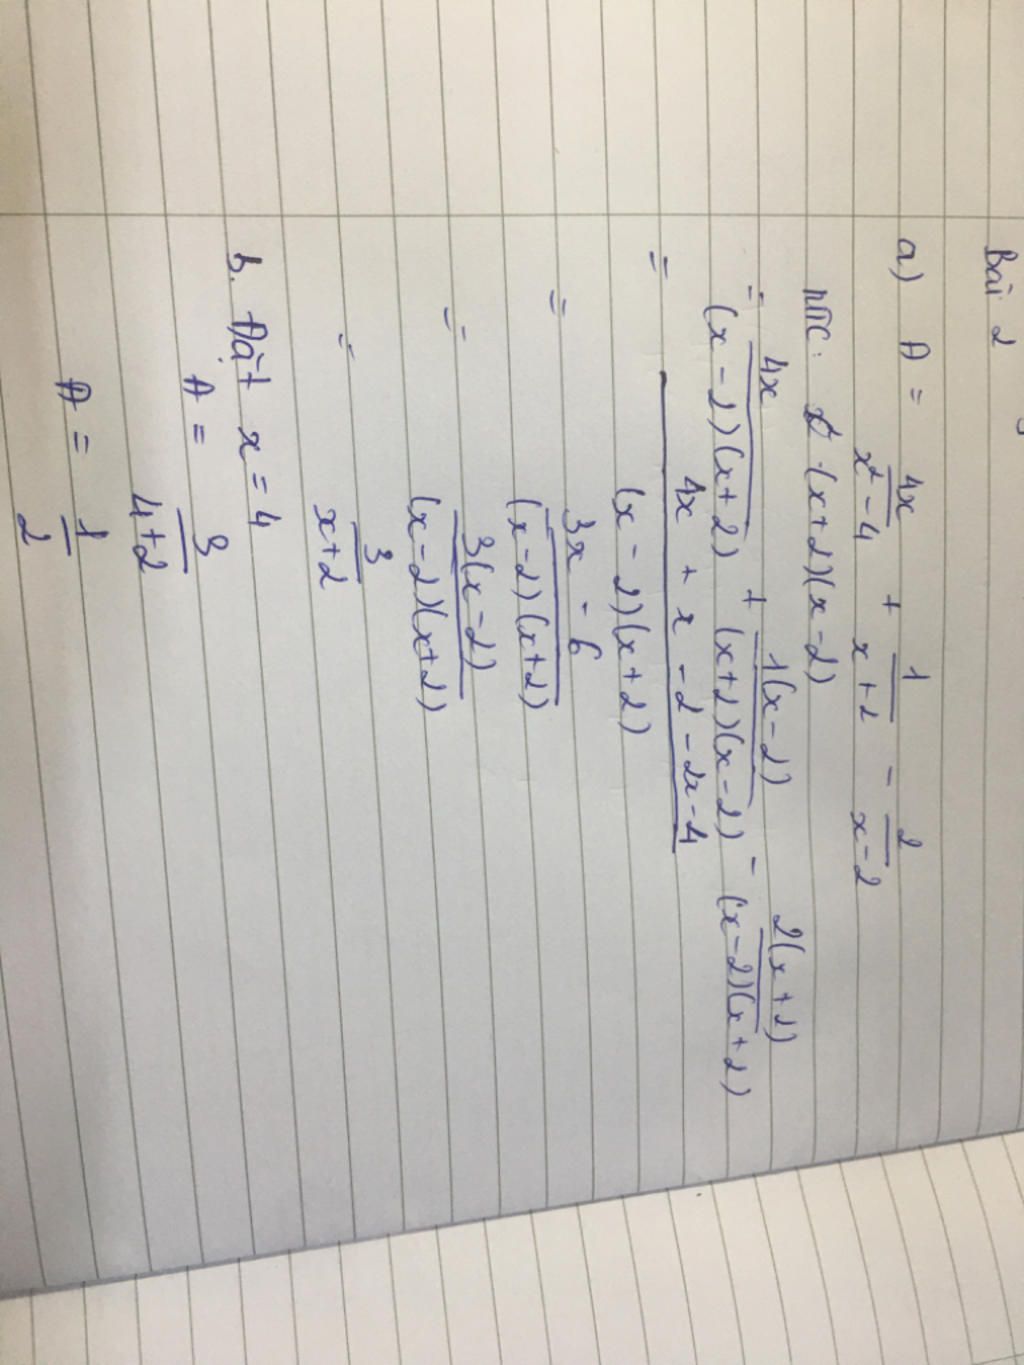 Bài 2
a) A = 4x/(x² - 4) + 1/(x + 2) - 2/(x - 2)
MTC: (x+2)(x-2)
= 4x/((x - 2)(x + 2)) + 1(x - 2)/((x+2)(x-2)) - 2(x + 2)/((x-2)(x+2))
= (4x + x - 2 - 2x - 4)/((x - 2)(x + 2))
= (3x - 6)/((x-2)(x+2))
= 3(x-2)/((x-2)(x+2))
= 3/(x+2)
b. Đặt x = 4
A = 3/(4+2)
A = 1/2